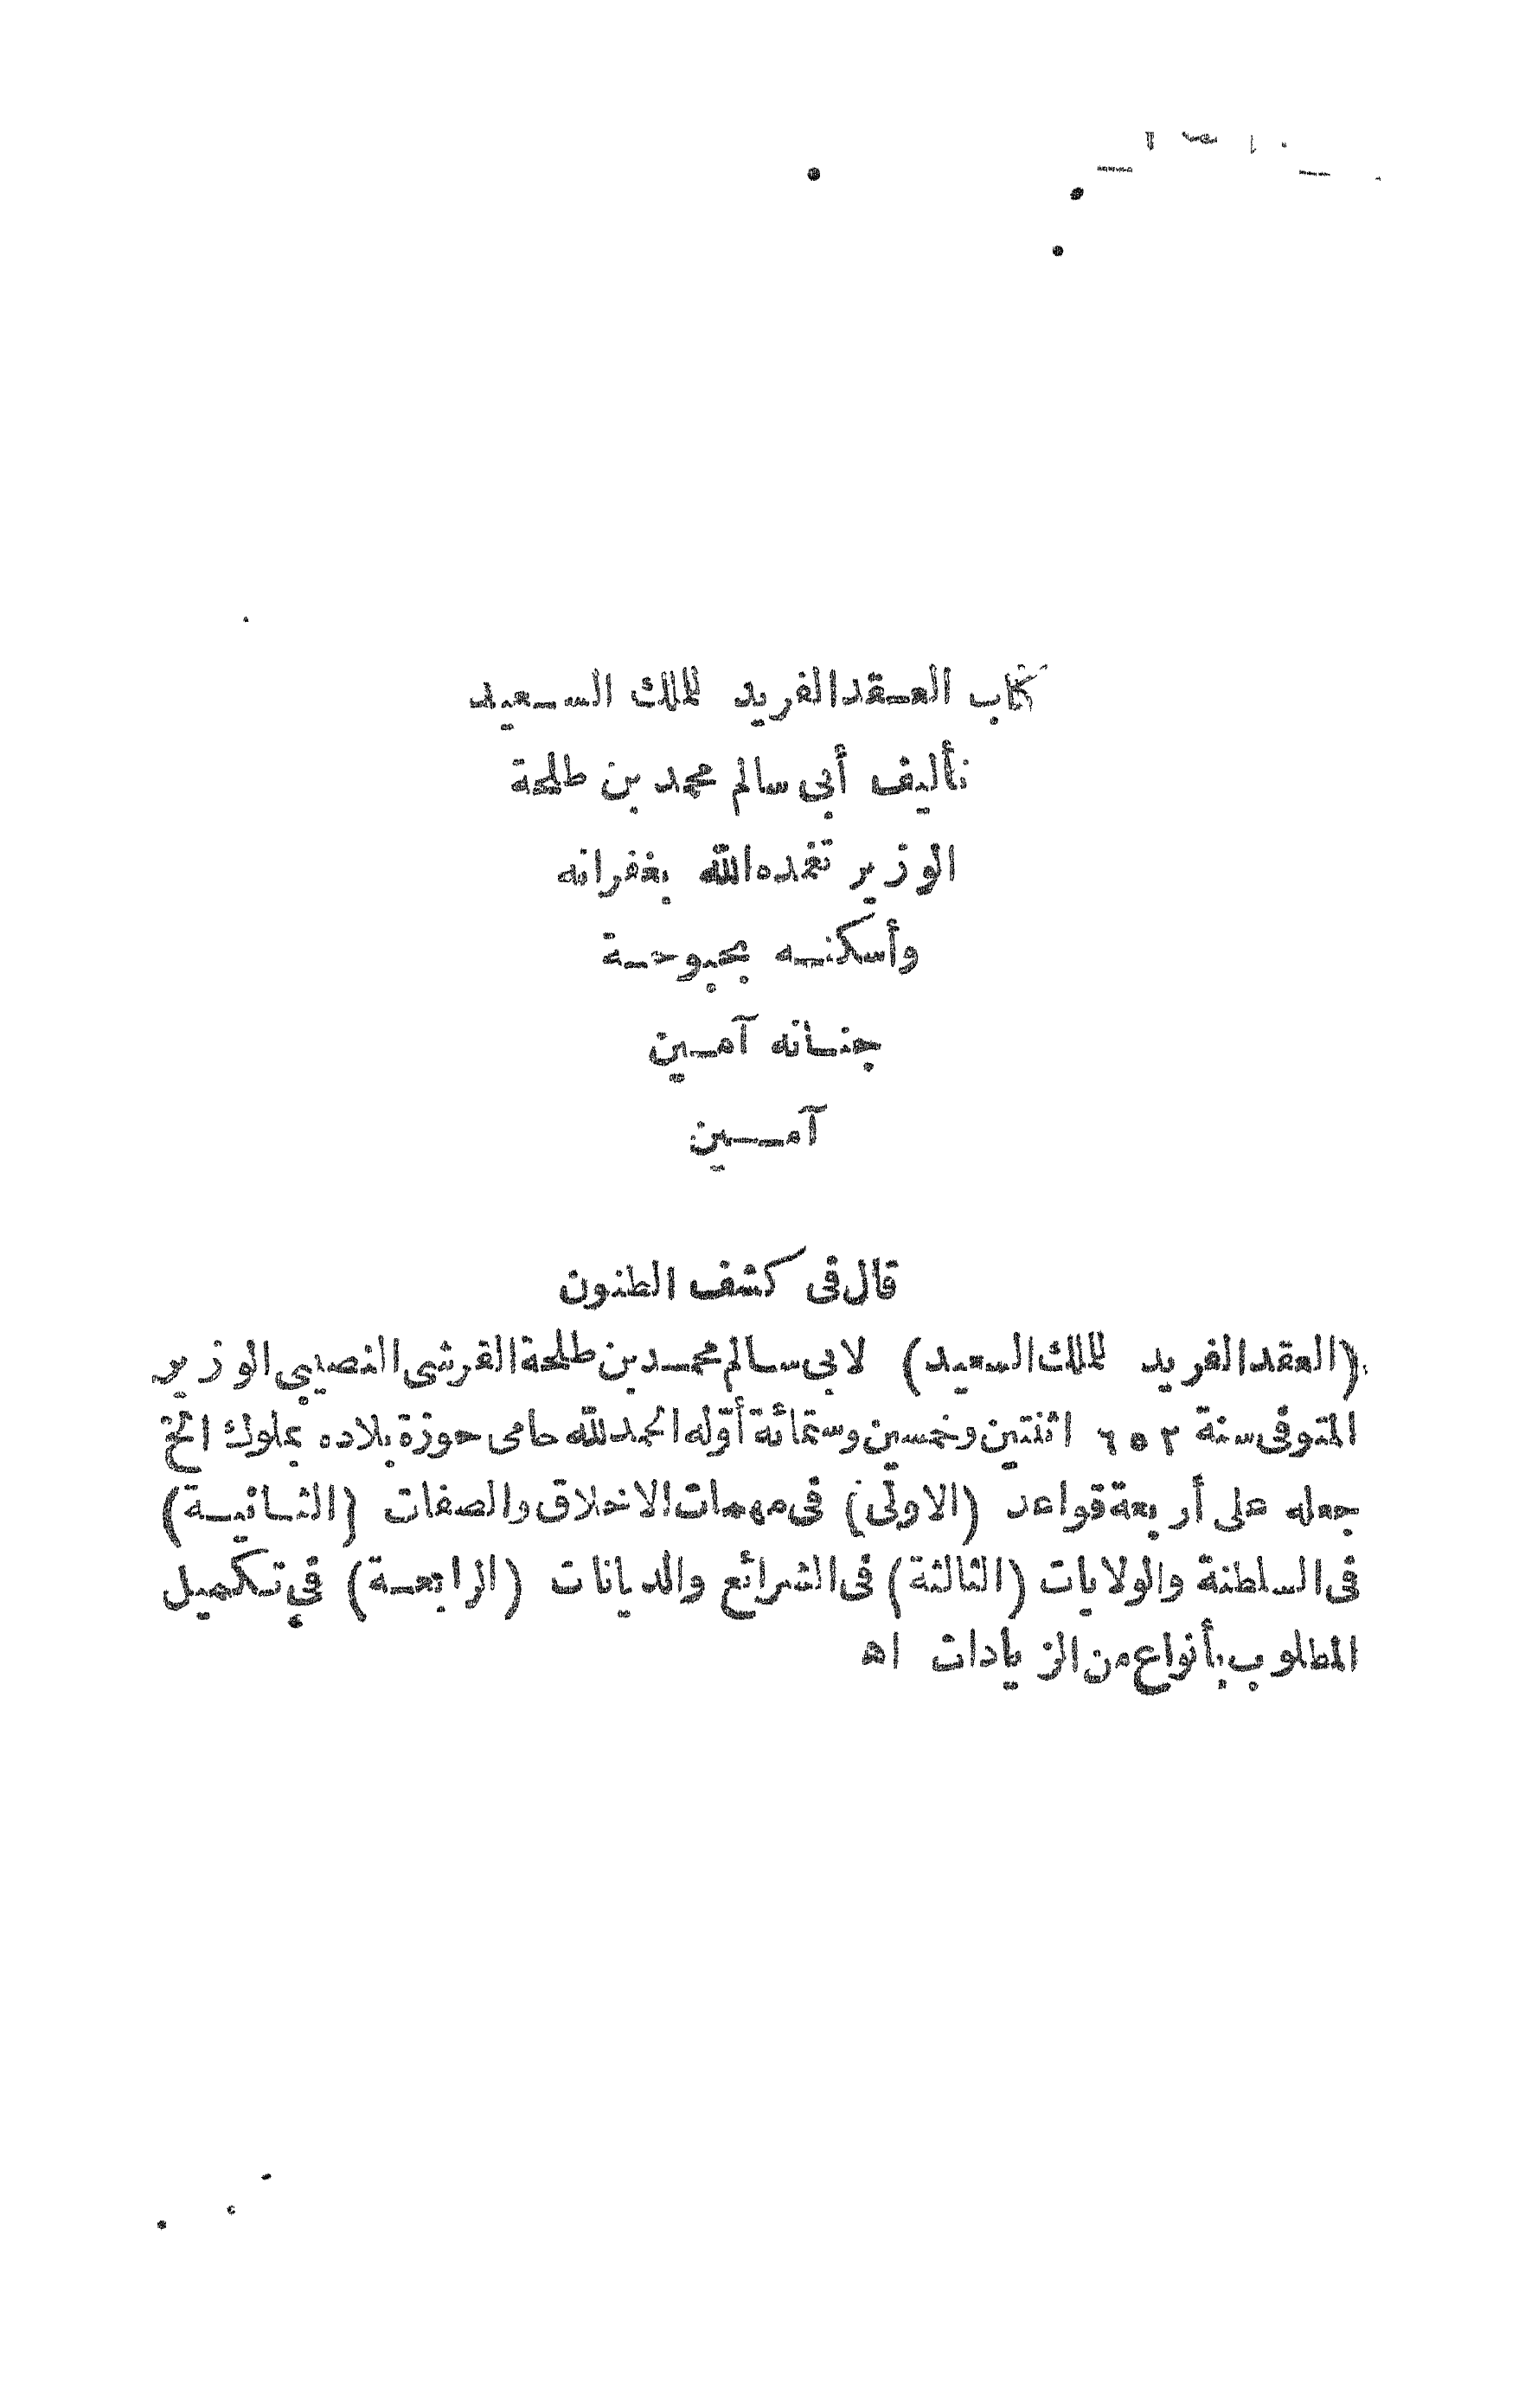 كتاب العقد الفريد للملك السعيد
تأليف أبي سالم محمد بن طلحة
الوزير تغمده الله بغفرانه
وأسكنه بحبوحة
جنانه آمين
آمين
قال فى كشف الظنون
(العقد الفريد للملك السعيد) لابى سالم محمد بن طلحة القرشى النصيبى الوزير
المتوفى سنة ٦٥٢ اثنتين وخمسين وستمائة أوّله الحمد لله حامى حوزة بلاده بملوك الخ
جعله على أربعة قواعد (الاولى) فى مهمات الاخلاق والصفات (الثانية)
فى السلطنة والولايات (الثالثة) فى الشرائع والديانات (الرابعة) في تكميل
المطلوب بأنواع من الزيادات اه